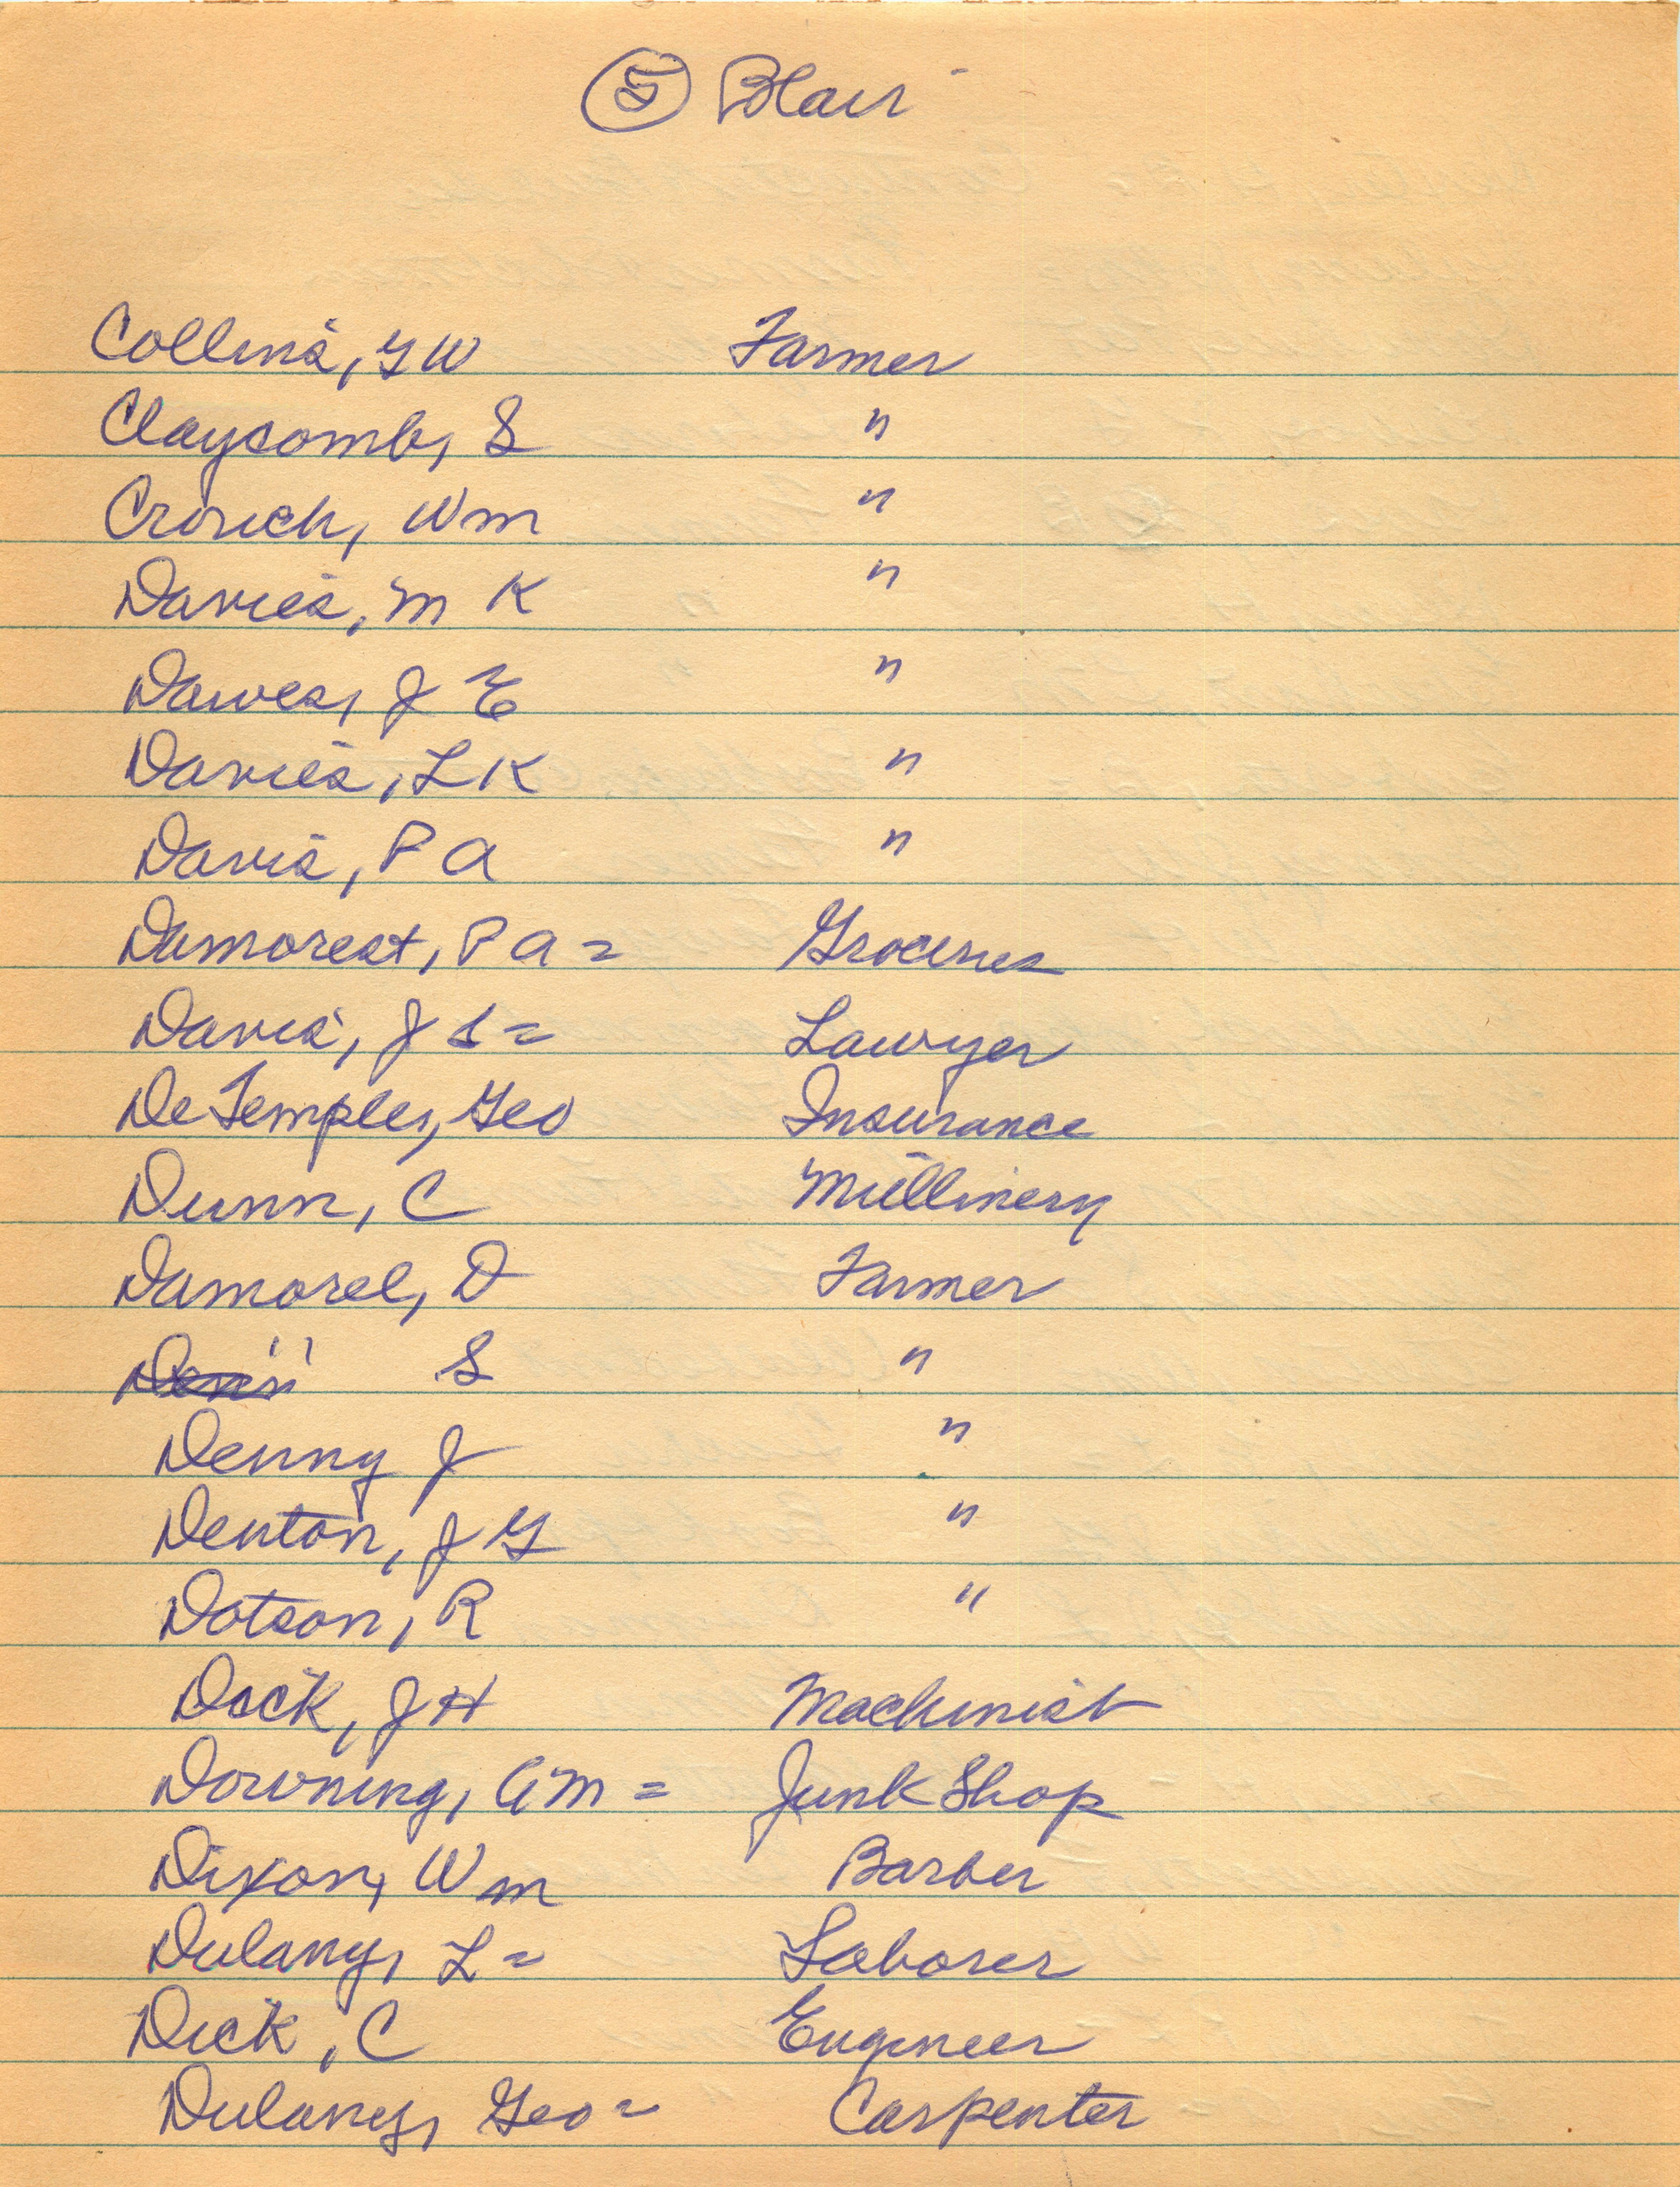 5 Blair
Collins, G W Farmer
Claycomb, S "
Crouch, Wm "
Davies, M K "
Dawes, J E "
Davies, L K "
Davis, P A "
Damorest, P A = Groceries
Davis, J S = Lawyer
DeTemples, Geo Insurance
Dunn, C Millinery
Damorel, D Farmer
" S "
Denny J "
Denton, J G "
Dotson, R "
Dick, J H Machinist
Downing, A M = Junk Shop
Dixon, Wm Barber
Dulany, L = Laborer
Dick, C Engineer
Dulaney, Geo = Carpenter